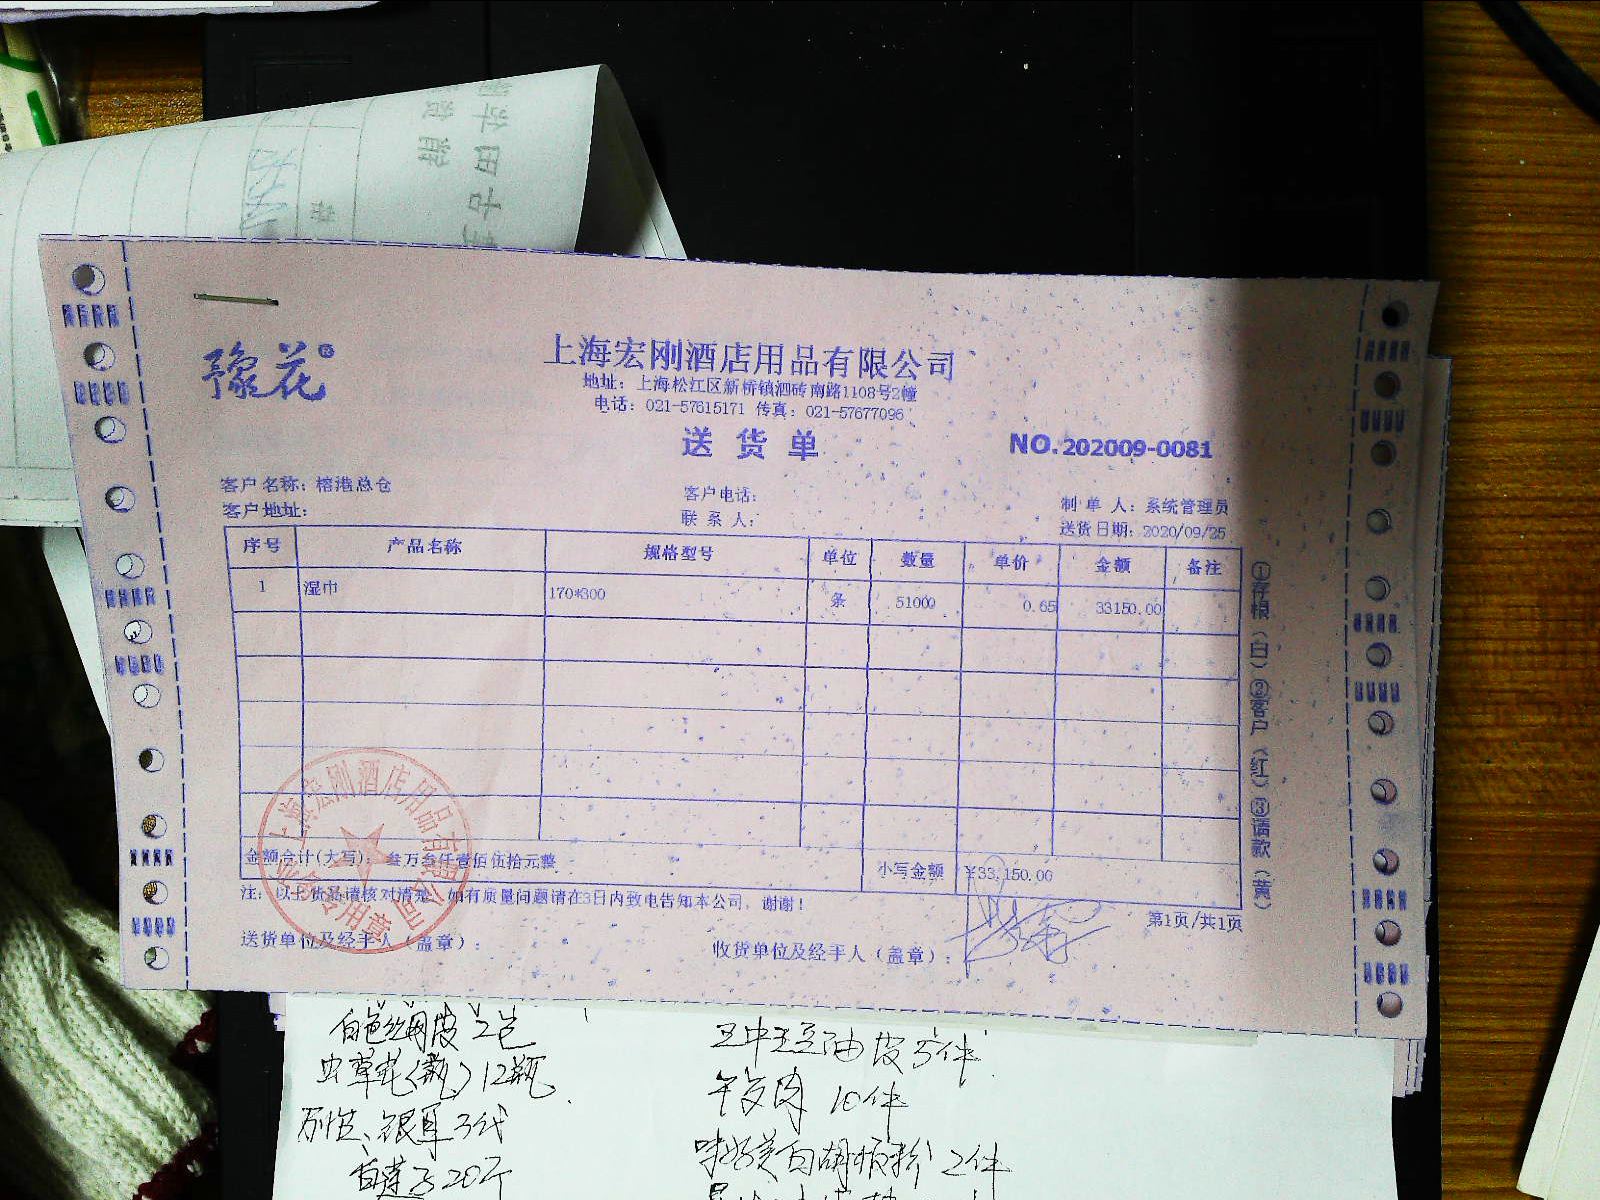 豫花
上海宏刚酒店用品有限公司
地址：上海松江区新桥镇泗砖南路1108号2幢
电话：021-57615171 传真：021-57677096
送货单
NO.202009-0081
客户名称：榕港总仓
客户电话：
制单人：系统管理员
客户地址：
联系人：
送货日期：2020/09/25
序号 产品名称 规格型号 单位 数量 单价 金额 备注
1 湿巾 170*300 条 51000 0.65 33150.00
金额合计(大写)：叁万叁仟壹佰伍拾元整 小写金额 ¥33,150.00
注：以上货品请核对清楚，如有质量问题请在3日内致电告知本公司，谢谢！
第1页/共1页
送货单位及经手人（盖章）：
收货单位及经手人（盖章）：
①存根（白）②客户（红）③请款（黄）
上海宏刚酒店用品有限公司
专用章
白色丝网皮2包
虫草花(瓶)12瓶
银耳3代
白莲子20斤
豆油皮5件
午夜肉 10件
味好美白胡椒粉2件